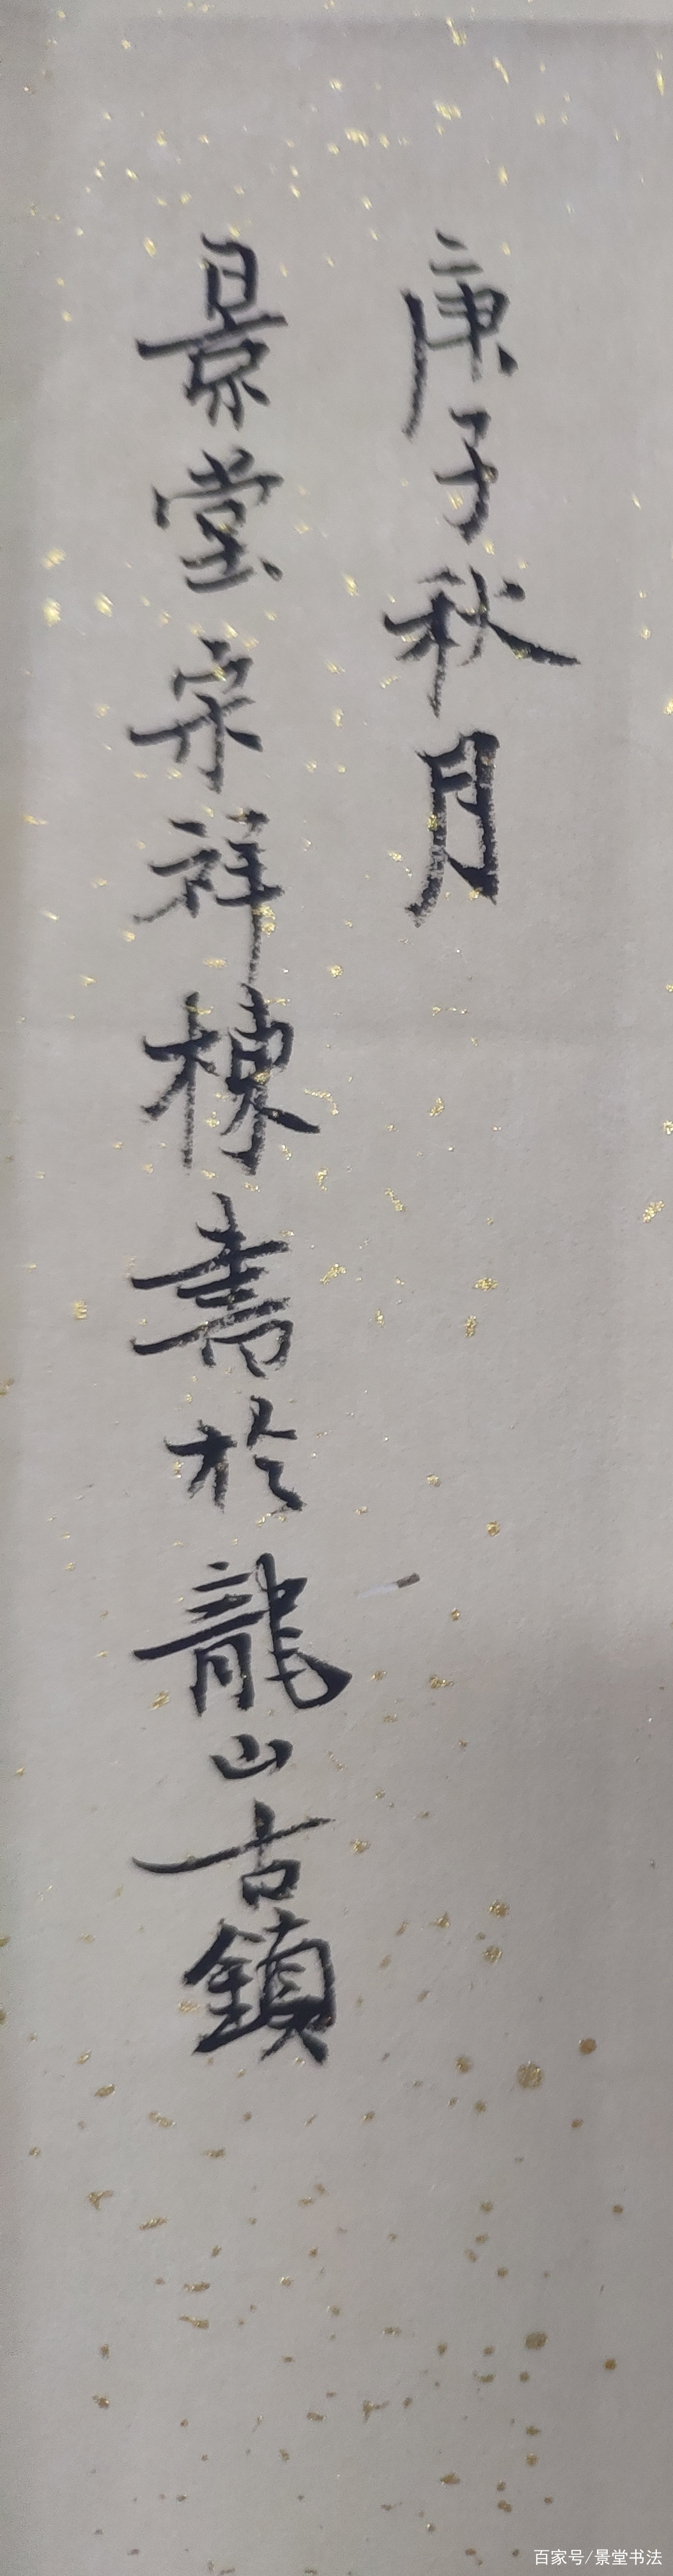 庚子秋月
景堂宋祥棟書於龍山古鎮
百家号/景堂书法